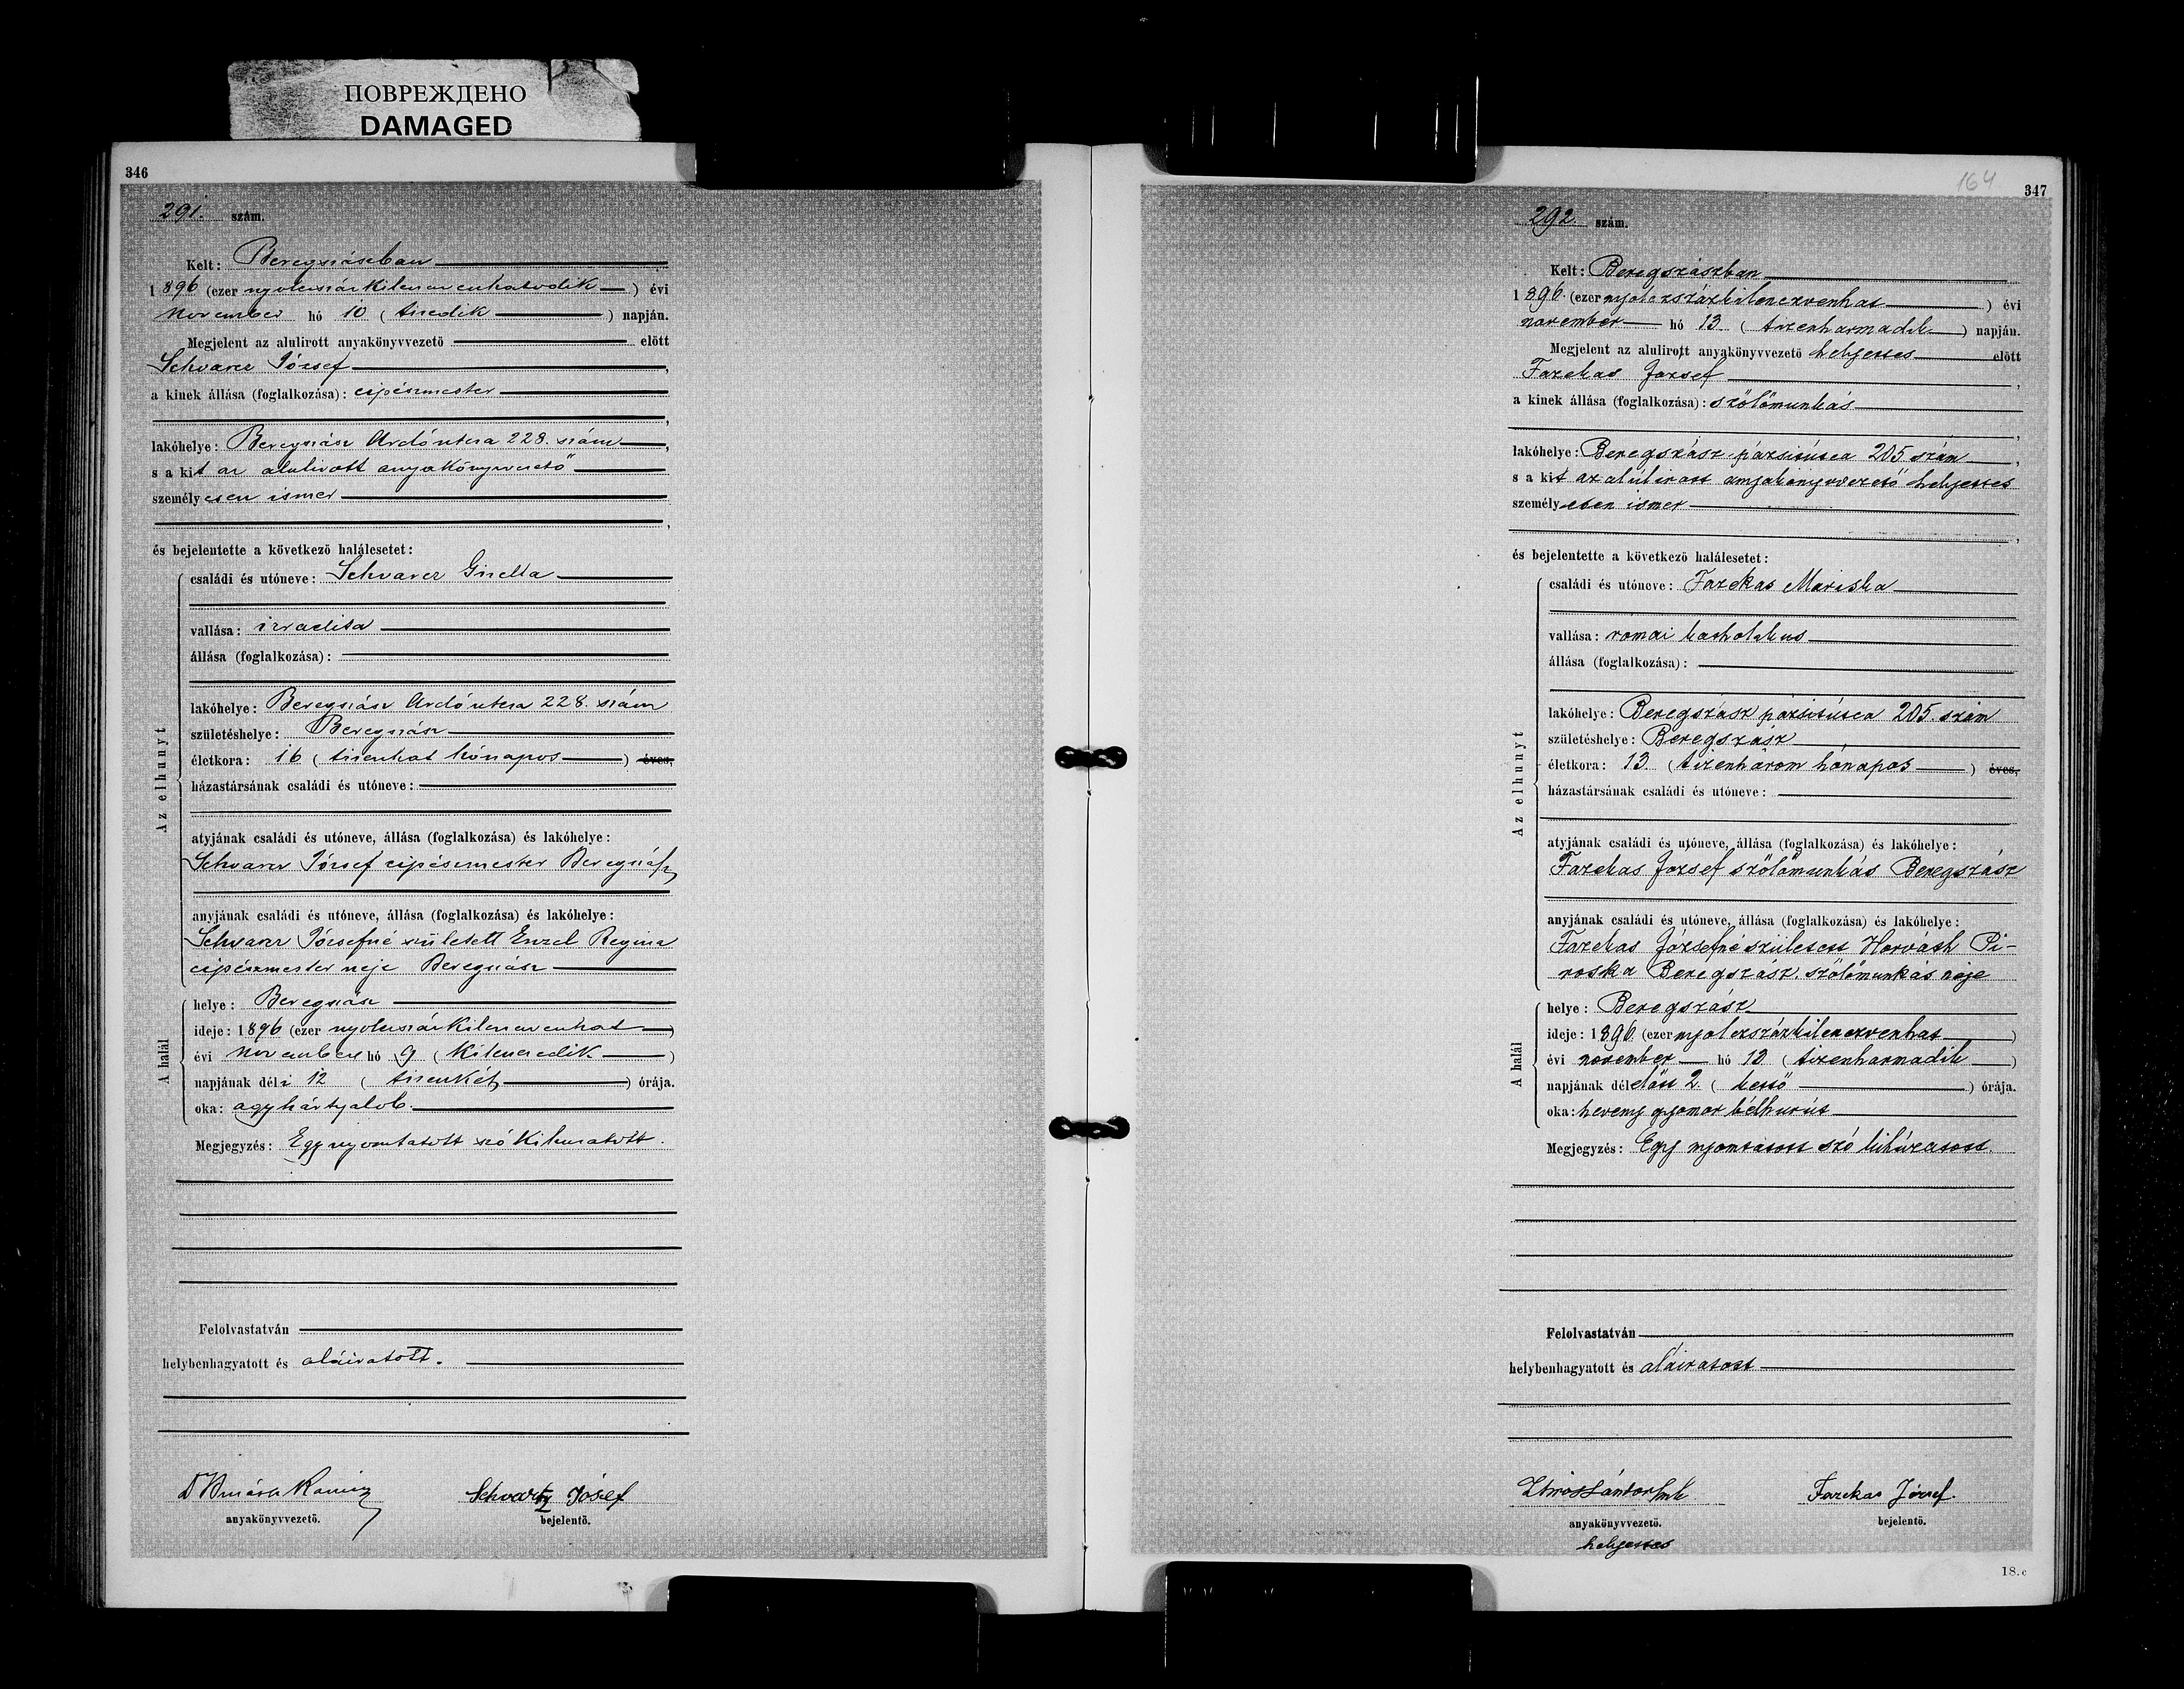 ПОВРЕЖДЕНО
DAMAGED
346
291. szám.
Kelt: Beregszászban
1896 (ezer nyolczszázkilenczvenhatodik) évi
november hó 10 (tizedik) napján.
Megjelent az alulirott anyakönyvvezető előtt
Schvarcz József,
a kinek állása (foglalkozása): czipészmester
,
lakóhelye: Beregszász Ardó utcza 228. szám,
s a kit az alulirott anyakönyvvezető
személyesen ismer
,
és bejelentette a következő halálesetet:
Az elhunyt
családi és utóneve: Schvarcz Gizella
vallása: izraelita
állása (foglalkozása):
lakóhelye: Beregszász Ardó utcza 228. szám
születéshelye: Beregszász
életkora: 16 (tizenhat hónapos) éves,
házastársának családi és utóneve:
atyjának családi és utóneve, állása (foglalkozása) és lakóhelye:
Schvarcz József czipészmester Beregszász
anyjának családi és utóneve, állása (foglalkozása) és lakóhelye:
Schvarcz Józsefné született Enzel Regina
czipészmester neje Beregszász
A halál
helye: Beregszász
ideje: 1896 (ezer nyolczszázkilenczvenhat)
évi november hó 9 (kilenczedik)
napjának déli 12 (tizenkét) órája.
oka: agyhártyalob.
Megjegyzés: Egy nyomtatott szó kihuzatott.
Felolvastatván
helybenhagyatott és aláiratott.
Schvartz Jósef
anyakönyvvezető.
bejelentő.
164
347
292. szám.
Kelt: Beregszászban
1896. (ezer nyolczszázkilenczvenhat) évi
november hó 13 (tizenharmadik) napján.
Megjelent az alulirott anyakönyvvezető helyettes előtt
Fazekas József,
a kinek állása (foglalkozása): szőlőmunkás
,
lakóhelye: Beregszász pázsitútcza 205 szám,
s a kit az alúlirott anyakönyvvezető helyettes
személyesen ismer
,
és bejelentette a következő halálesetet:
Az elhunyt
családi és utóneve: Fazekas Mariska
vallása: római katholikus
állása (foglalkozása):
lakóhelye: Beregszász pázsitútcza 205. szám
születéshelye: Beregszász
életkora: 13. (tizenhárom hónapos) éves,
házastársának családi és utóneve:
atyjának családi és utóneve, állása (foglalkozása) és lakóhelye:
Fazekas József szőlőmunkás Beregszász
anyjának családi és utóneve, állása (foglalkozása) és lakóhelye:
Fazekas Józsefné született Horváth Pi-
roska Beregszász. szőlőmunkás neje
A halál
helye: Beregszász
ideje: 1896. (ezer nyolczszázkilenczvenhat)
évi november hó 13 (tizenharmadik)
napjának délelőtt 2. (kettő) órája.
oka: heveny gyomor bélhurút
Megjegyzés: Egy nyomtatott szó kihúzatott.
Felolvastatván
helybenhagyatott és aláiratott
Fazekas József.
anyakönyvvezető.
bejelentő.
helyettes
18.c